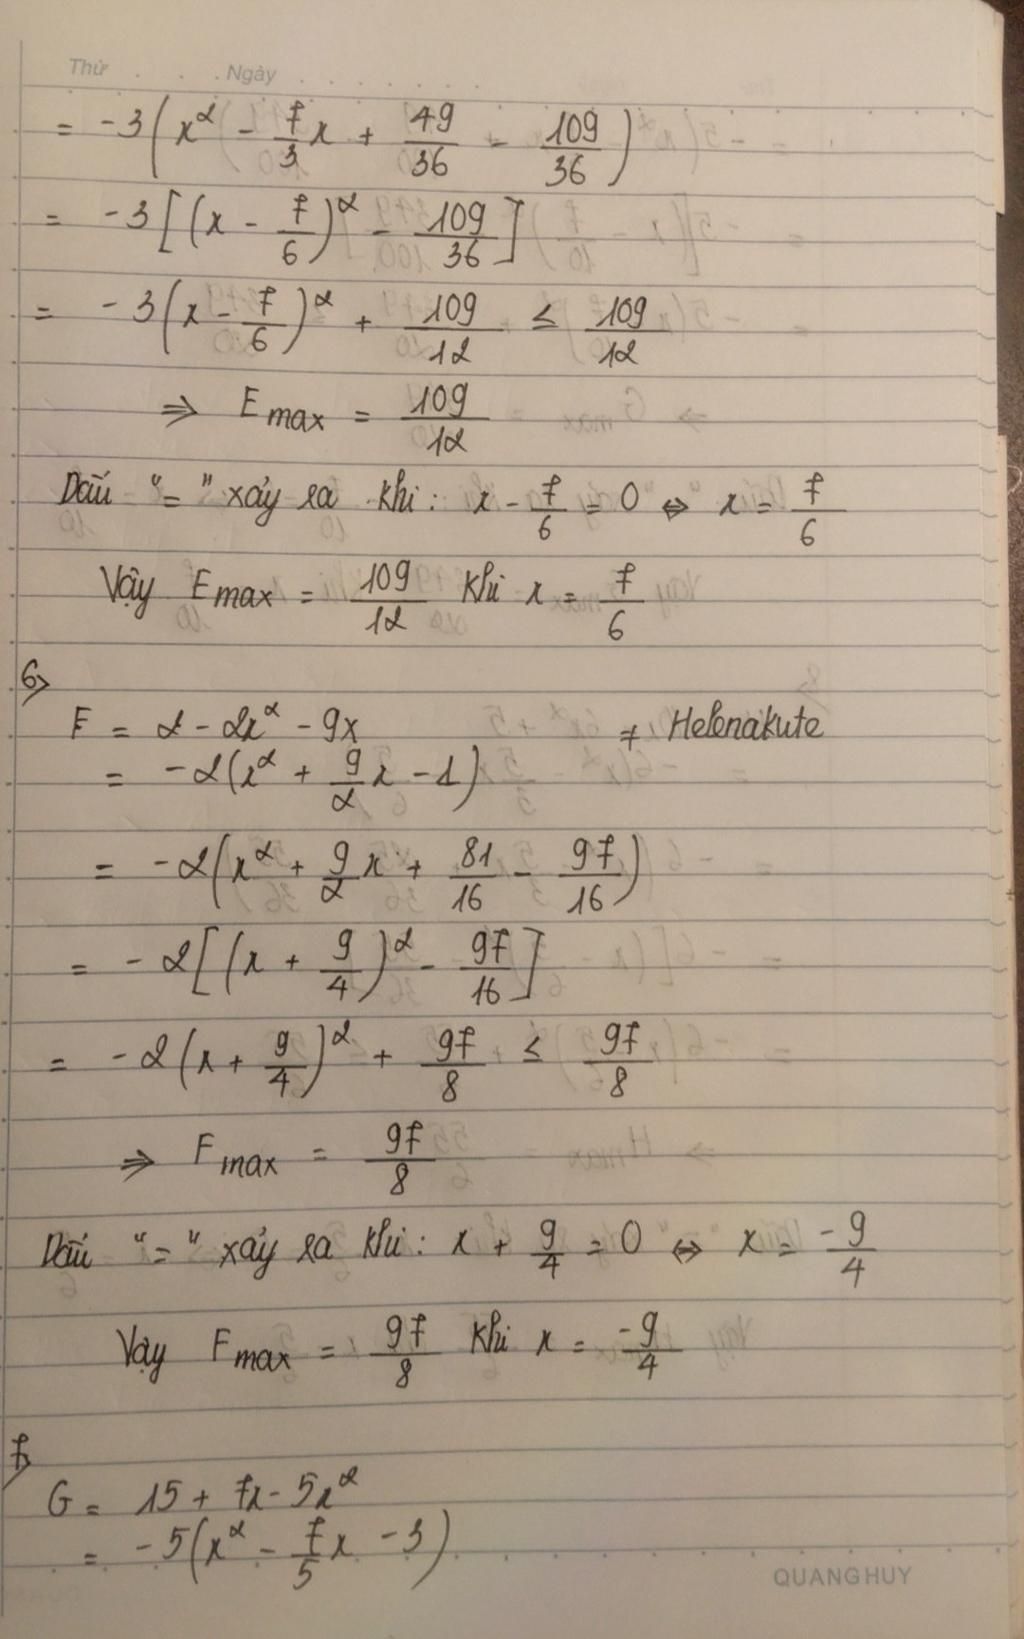 Thứ . . . . Ngày . . . . . . .
= -3(x² - 7/3 x + 49/36 - 109/36)
= -3[(x - 7/6)² - 109/36]
= -3(x - 7/6)² + 109/12 ≤ 109/12
⇒ Emax = 109/12
Dấu "=" xảy ra khi: x - 7/6 = 0 ⇔ x = 7/6
Vậy Emax = 109/12 khi x = 7/6
6>
F = 2 - 2x² - 9x ≠ Helenakute
= -2(x² + 9/2 x - 1)
= -2(x² + 9/2 x + 81/16 - 97/16)
= -2[(x + 9/4)² - 97/16]
= -2(x + 9/4)² + 97/8 ≤ 97/8
⇒ Fmax = 97/8
Dấu "=" xảy ra khi: x + 9/4 = 0 ⇔ x = -9/4
Vậy Fmax = 97/8 khi x = -9/4
7>
G = 15 + 7x - 5x²
= -5(x² - 7/5 x - 3)
QUANGHUY